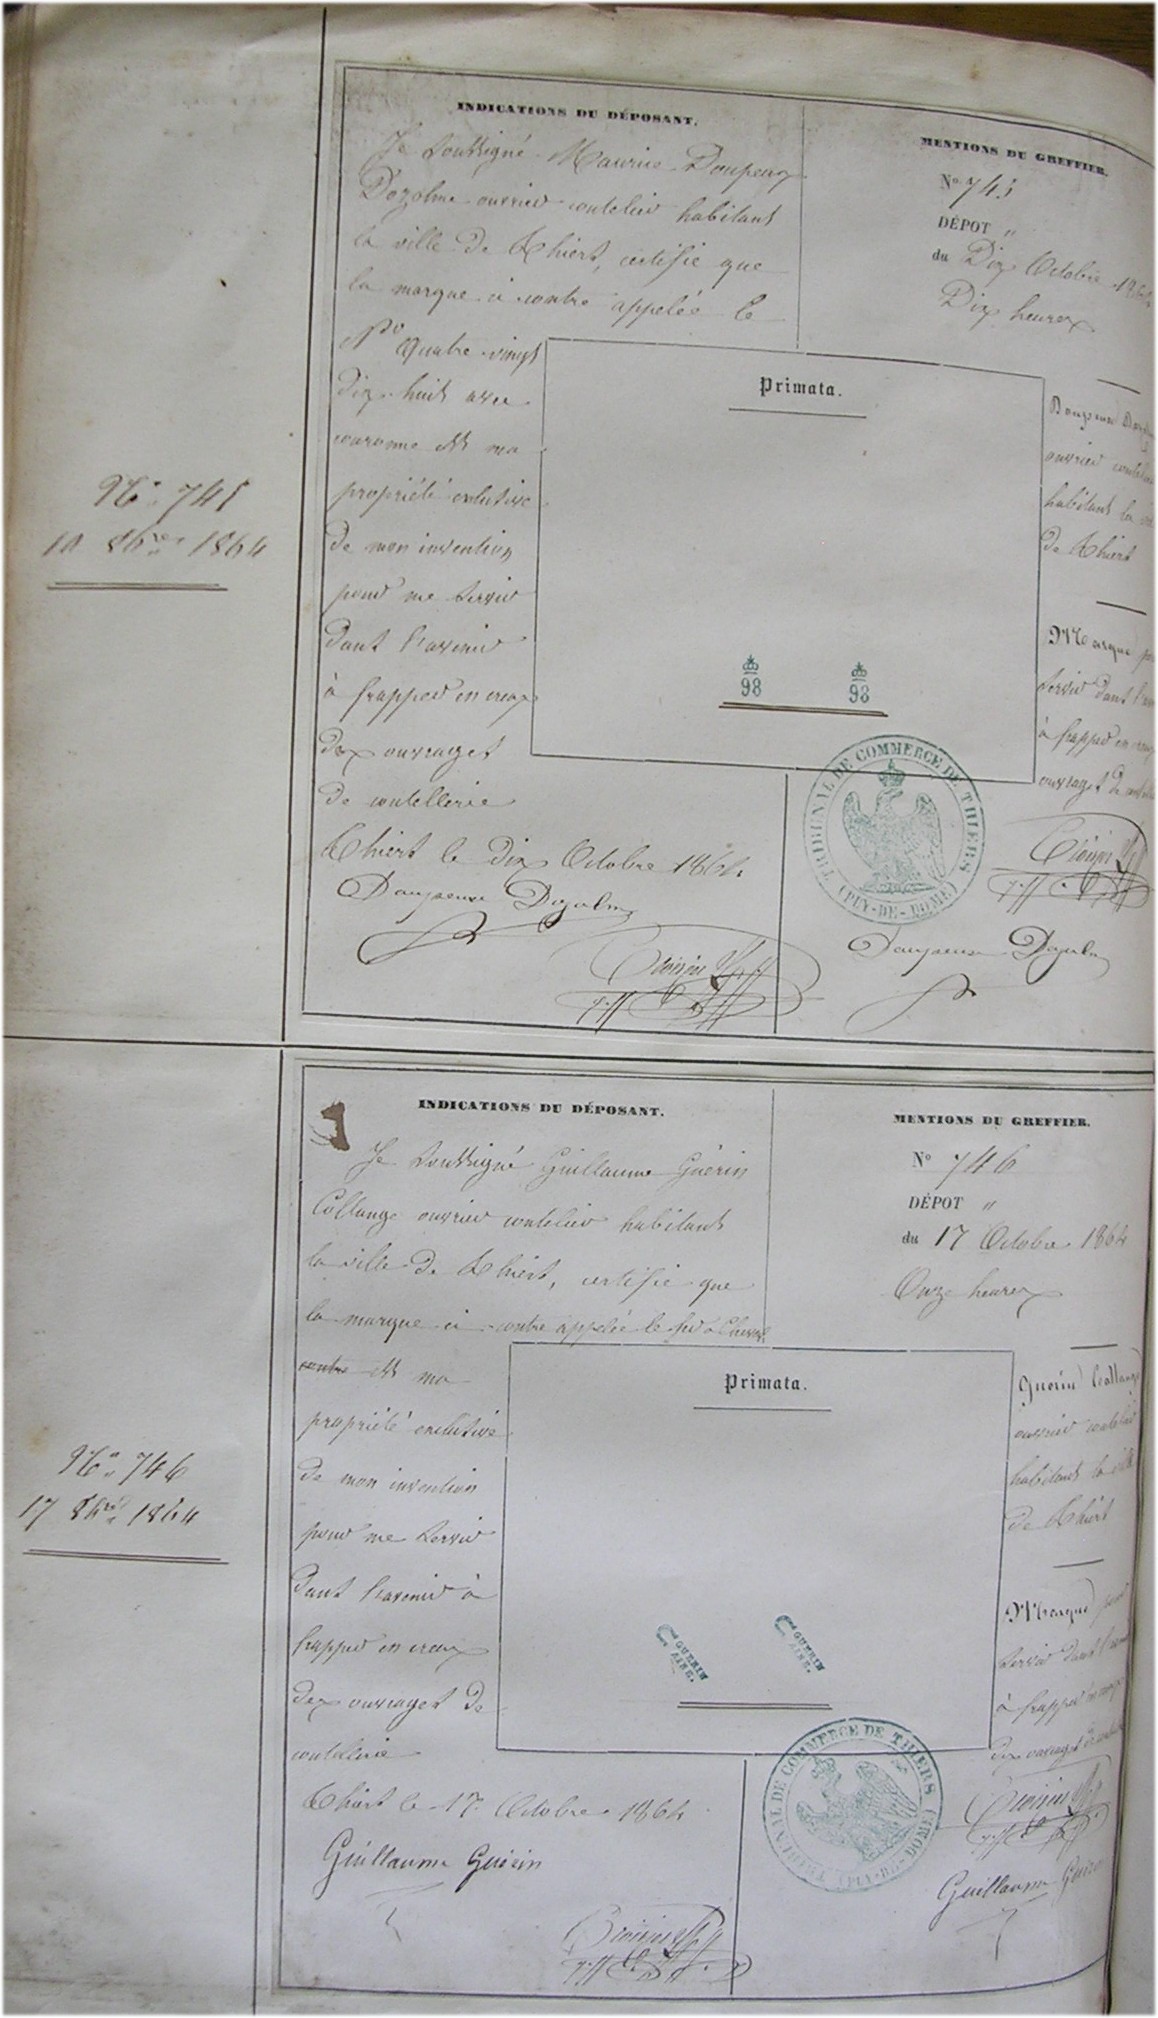 No. 745
10 8bre 1864
INDICATIONS DU DÉPOSANT.
Je soussigné Maurice
Dozolme ouvrier coutelier habitant
la ville de Thiers, certifie que
la marque ci contre appelée le
No quatre vingt
dix huit avec
couronne est ma
propriété exclusive
de mon invention
pour me servir
dans l'avenir
à frapper en creux
des ouvrages
de coutellerie
Thiers le Dix Octobre 1864
MENTIONS DU GREFFIER.
No. 745
DÉPOT "
du Dix Octobre 1864
Dix heures
Primata.
98
98
ouvrier
habitant la
de Thiers
Marque
servir dans
à frapper en
ouvrages de
TRIBUNAL DE COMMERCE DE THIERS
(PUY-DE-DOME)
No. 746
17 8bre 1864
INDICATIONS DU DÉPOSANT.
Je soussigné Guillaume Guérin
Collange ouvrier coutelier habitant
la ville de Thiers, certifie que
la marque ci contre appelée le fer à Cheval
contre est ma
propriété exclusive
de mon invention
pour me servir
dans l'avenir à
frapper en creux
des ouvrages de
coutellerie
Thiers le 17 Octobre 1864
Guillaume Guérin
MENTIONS DU GREFFIER.
No 746
DÉPOT "
du 17 Octobre 1864
Onze heures
Primata.
GUERIN
AINE.
GUERIN
AINE.
Guérin Collange
ouvrier coutelier
habitant la ville
de Thiers
Marque pour
servir dans
à frapper
des ouvrages
TRIBUNAL DE COMMERCE DE THIERS
(PUY-DE-DOME)
Guillaume Guérin